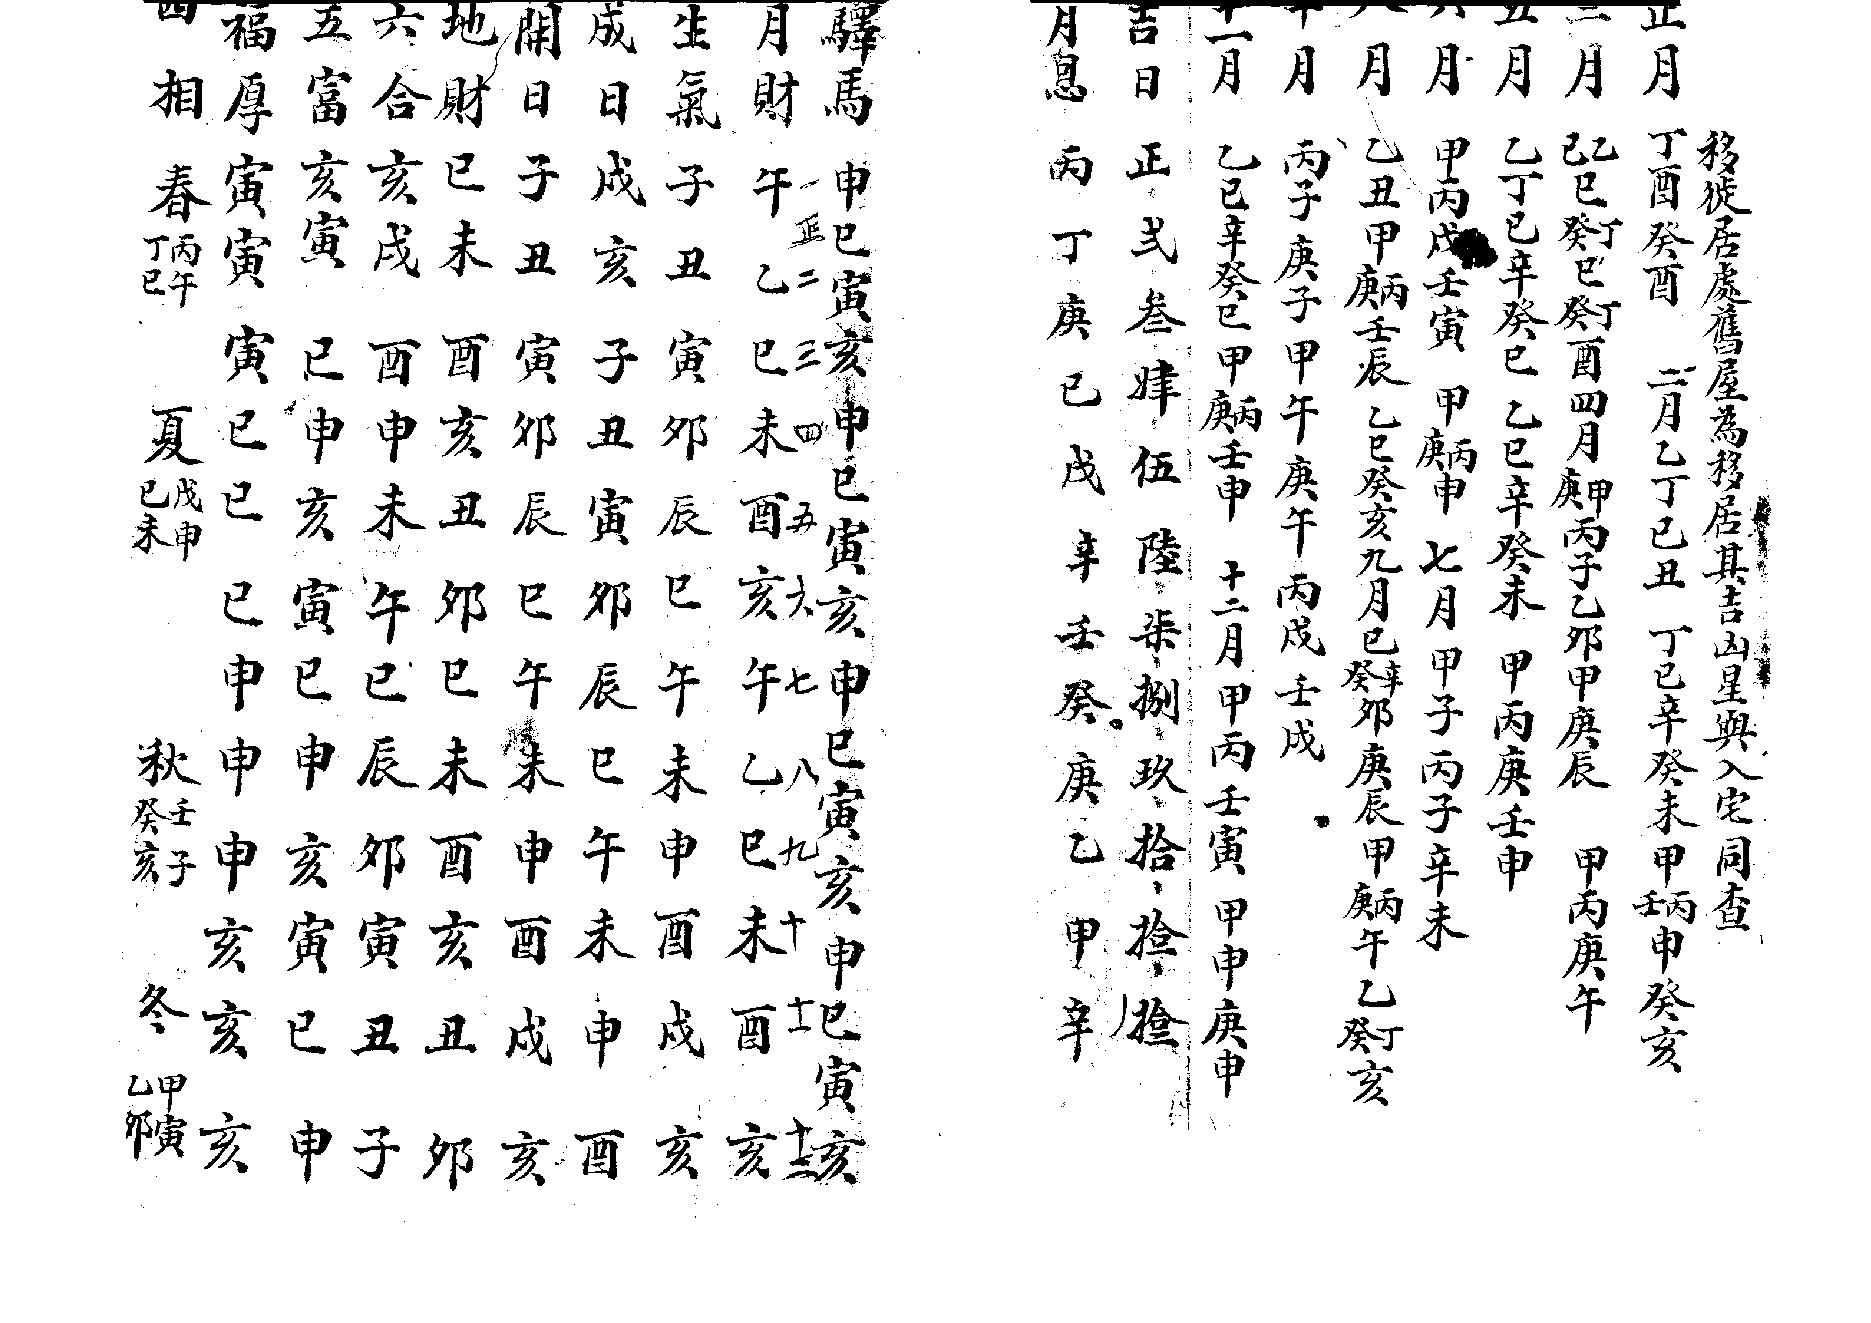 移徙居處舊屋為移居其吉凶星與入宅同查
正月 丁酉癸酉 二月乙丁巳丑 丁巳辛癸未甲丙壬申癸亥
三月 乙己巳丁癸巳丁癸酉四月甲庚丙子乙卯甲庚辰 甲丙庚午
五月 乙丁巳辛癸巳 乙巳辛癸未 甲丙庚壬申
六月 甲丙戌壬寅 甲丙庚申 七月甲子丙子辛未
八月 乙丑甲丙庚壬辰 乙巳癸亥九月巳辛癸卯庚辰甲丙庚午乙丁癸亥
十月 丙子庚子甲午庚午丙戌壬戌
十一月 乙巳辛癸巳甲丙庚壬申 十二月甲丙壬寅甲申庚申
吉日 正弍叁肆伍陸柒捌玖拾拾拾
月恩 丙丁庚己戊辛壬癸庚乙甲辛
驛馬 申巳寅亥申巳寅亥申巳寅亥
正二三四五六七八九十十一十二
月財 午乙巳未酉亥午乙巳未酉亥
生氣 子丑寅卯辰巳午未申酉戌亥
成日 戌亥子丑寅卯辰巳午未申酉
開日 子丑寅卯辰巳午未申酉戌亥
地財 巳未酉亥丑卯巳未酉亥丑卯
六合 亥戌酉申未午巳辰卯寅丑子
五富 亥寅巳申亥寅巳申亥寅巳申
福厚 寅寅寅巳巳巳申申申亥亥亥
四相 春 丙午丁巳 夏 戊申己未 秋 壬子癸亥 冬 甲寅乙卯